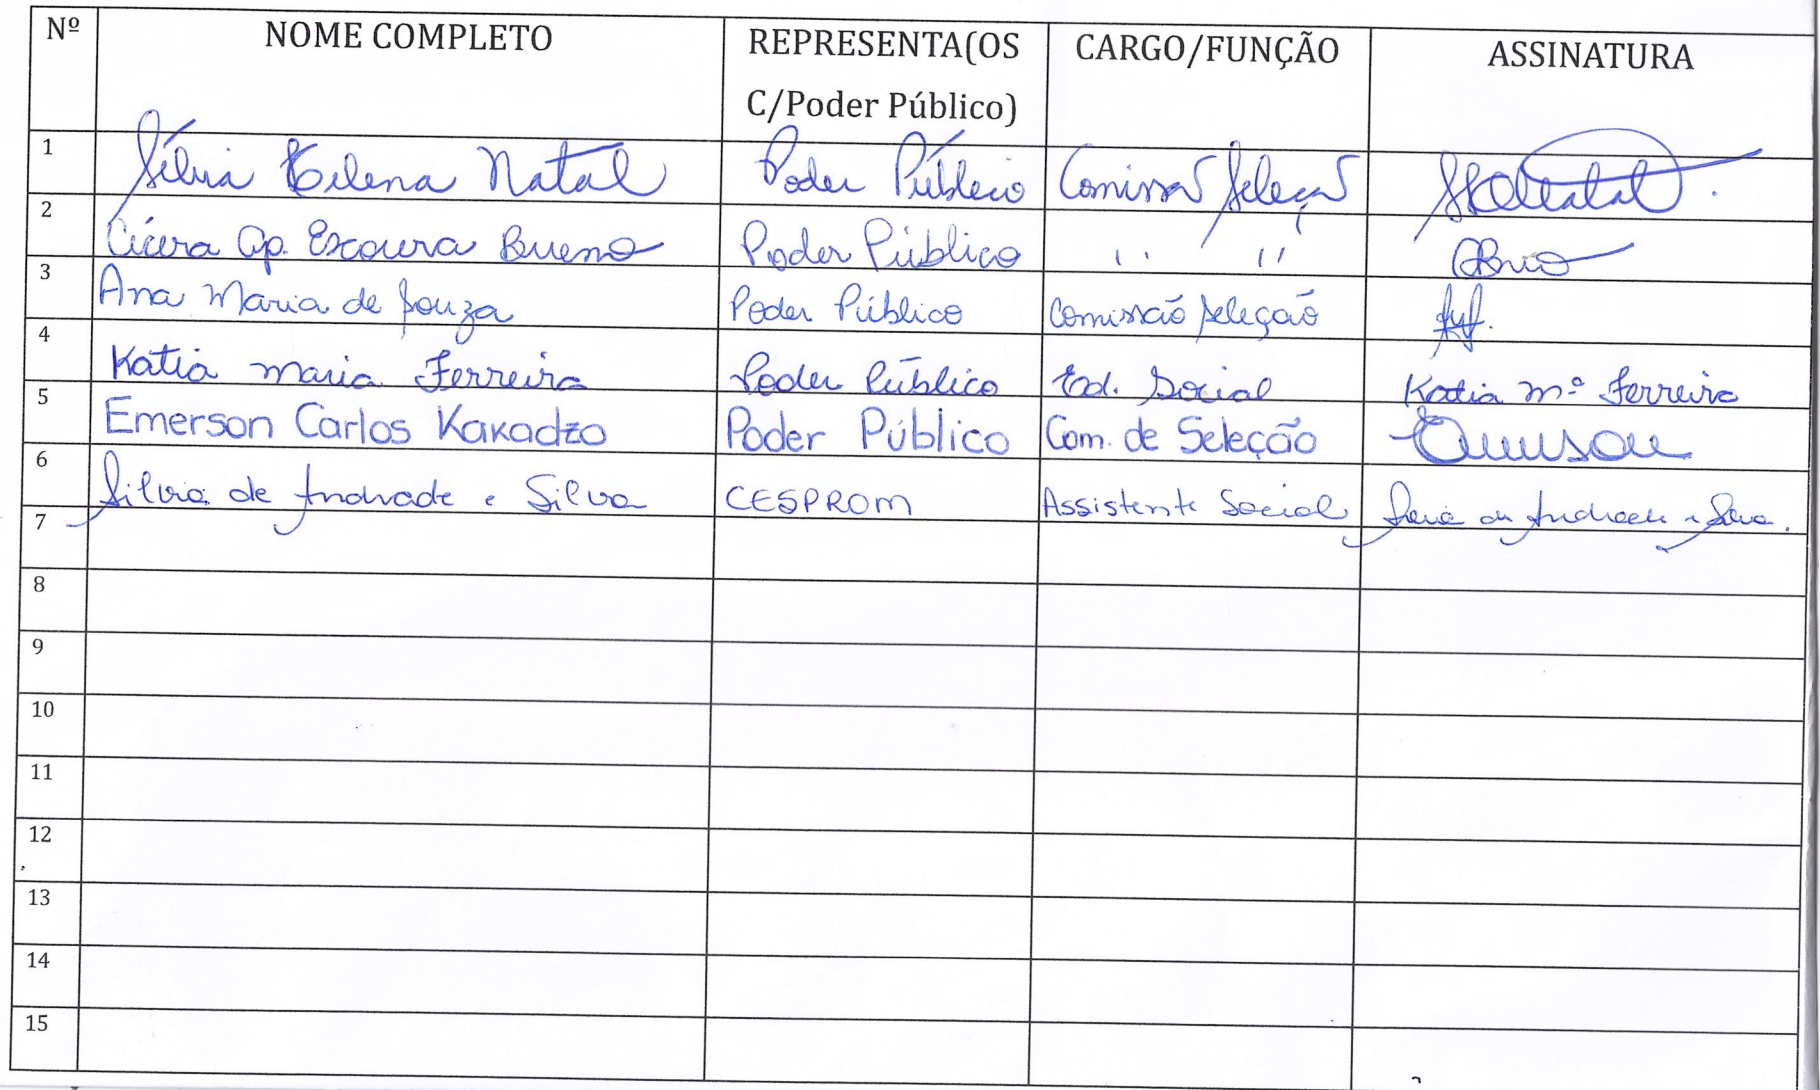 Nº NOME COMPLETO REPRESENTA(OS C/Poder Público) CARGO/FUNÇÃO ASSINATURA
1 Sílvia Helena Natal Poder Público Comissão Seleção
2 Cícera Ap. Escoura Bueno Poder Público '' ''
3 Ana Maria de Souza Poder Público Comissão Seleção
4 Katia Maria Ferreira Poder Público Ed. Social Katia Mª Ferreira
5 Emerson Carlos Kakadzo Poder Público Com. de Seleção Emerson
6 Silvia de Andrade e Silva CESPROM Assistente Social Silvia de Andrade e Silva.
7
8
9
10
11
12
13
14
15